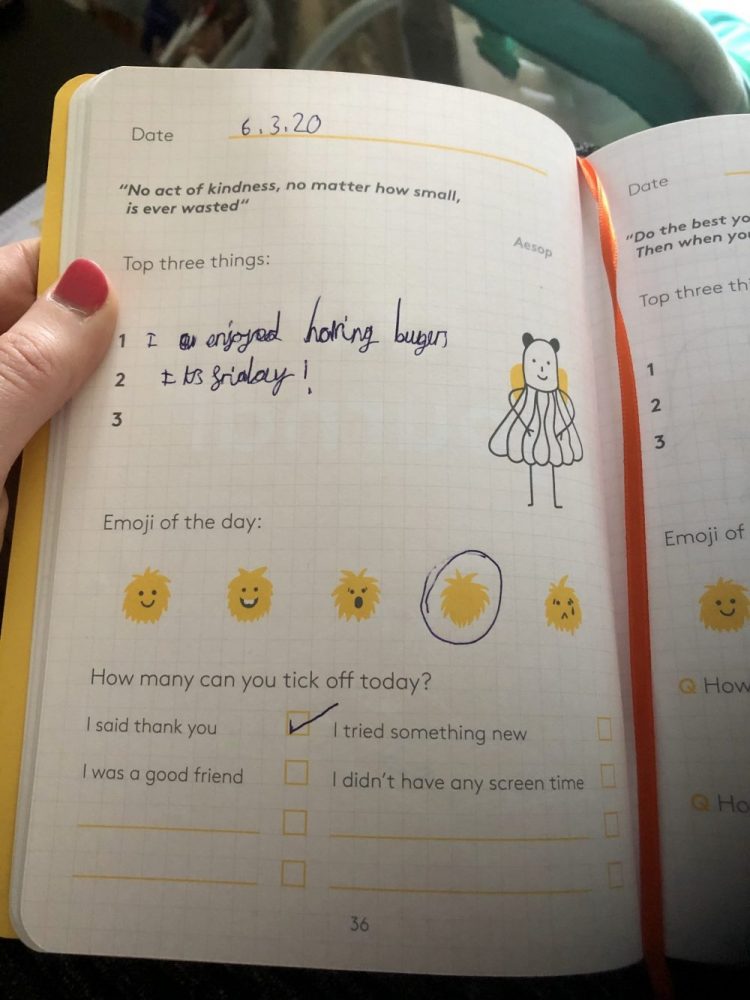 Date 6.3.20
"No act of kindness, no matter how small,
is ever wasted"
Aesop
Top three things:
1 I enjoyed having
2 Its friday!
3
Emoji of the day:
How many can you tick off today?
I said thank you
I tried something new
I was a good friend
I didn't have any screen time
36
Date
"Do the best
Then when
Top three
1
2
3
Emoji of
Q How
Q